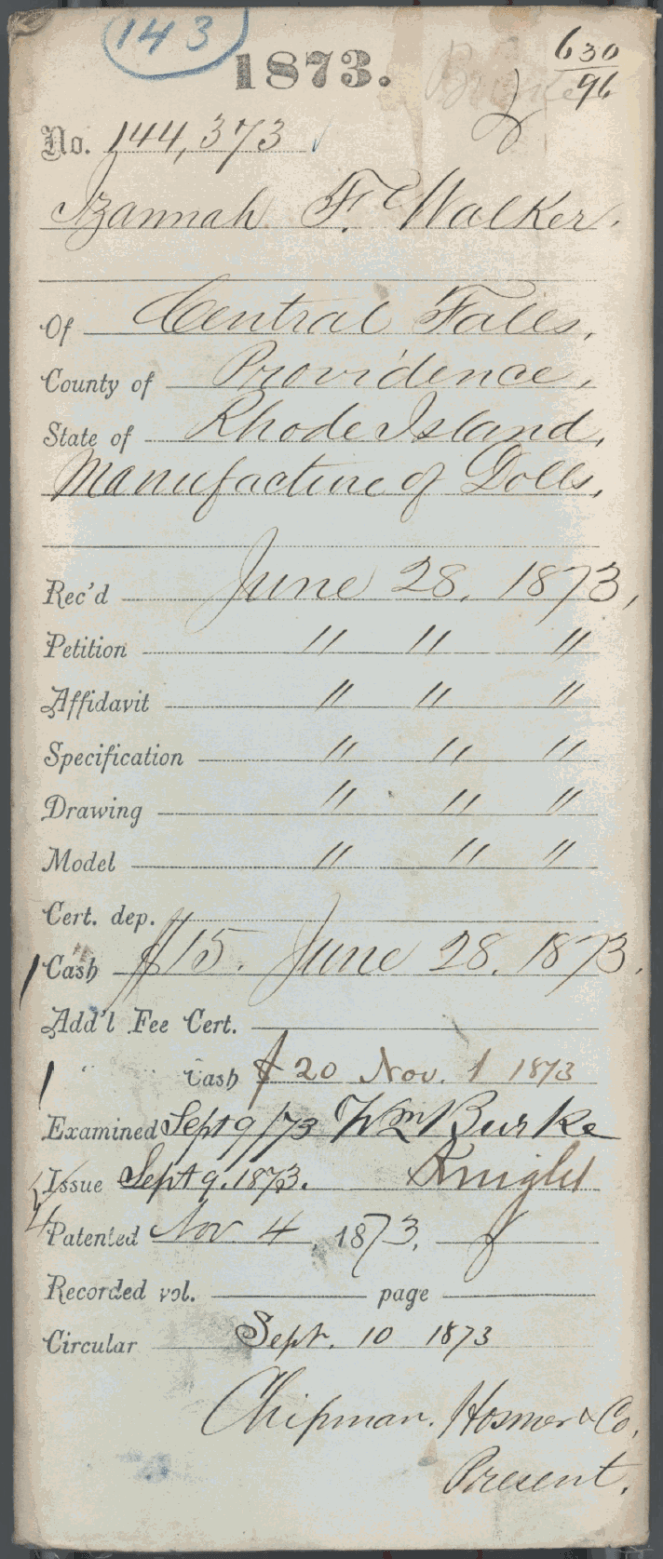 143
1873.
630
96
No. 144,373
Izannah F. Walker.
Of Central Falls,
County of Providence,
State of Rhode Island,
Manufacture of Dolls.
Rec'd June 28. 1873,
Petition " " "
Affidavit " " "
Specification " " "
Drawing " " "
Model " " "
Cert. dep.
Cash $15. June 28. 1873.
Add'l Fee Cert.
" Cash $20 Nov. 1 1873
Examined Sept 9/73 Wm Burke
Issue Sept 9. 1873. Knight
Patented Nov 4 1873.
Recorded vol. page
Circular Sept. 10 1873
Chipman. Hosmer & Co.
Present.